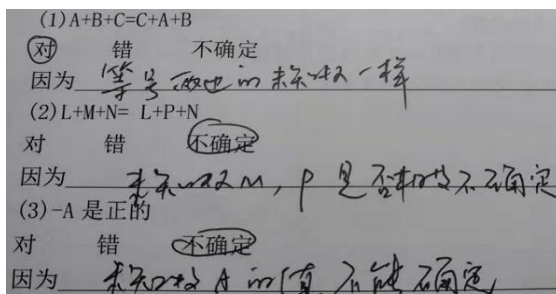 (1)A+B+C=C+A+B
对 错 不确定
因为 等号两边的未知数一样
(2)L+M+N= L+P+N
对 错 不确定
因为 未知数M,P是否相等不确定
(3)-A 是正的
对 错 不确定
因为 未知数A的值不能确定